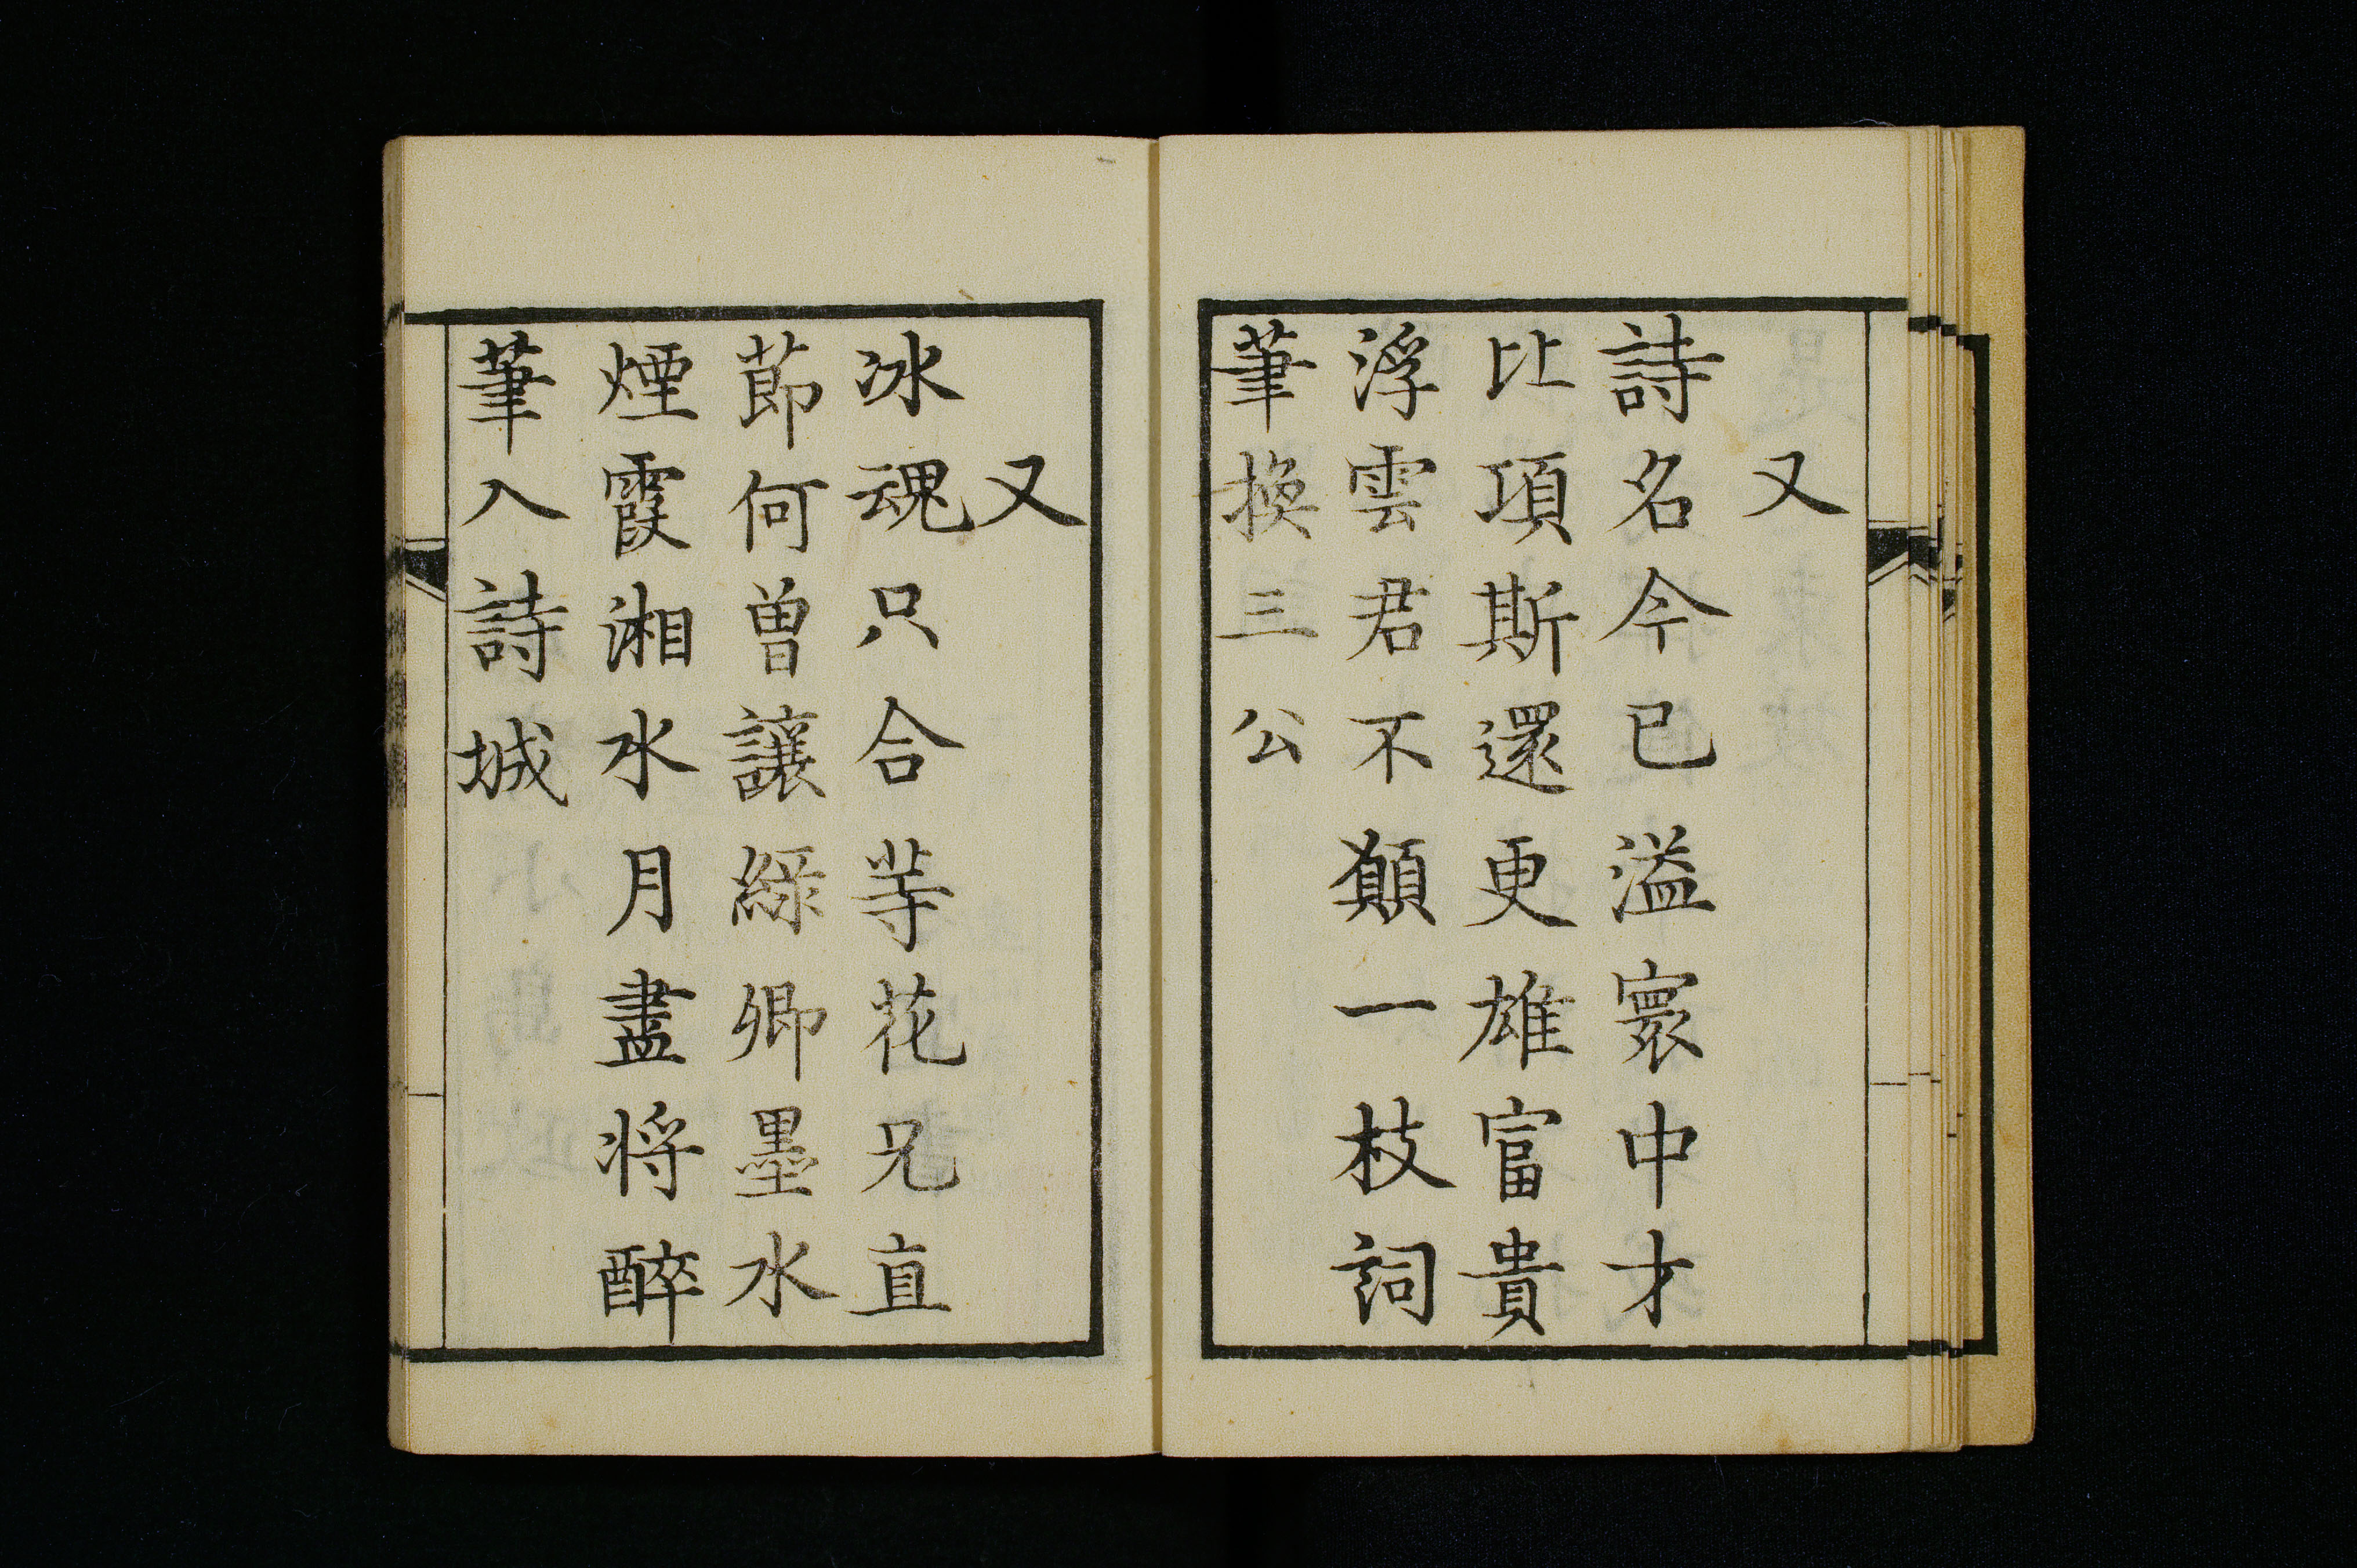 又
詩名今已溢寰中才
比項斯還更雄富貴
浮雲君不願一枝詞
筆換三公
又
冰魂只合等花兄直
節何曾讓綠卿墨水
煙霞湘水月盡將醉
筆入詩城